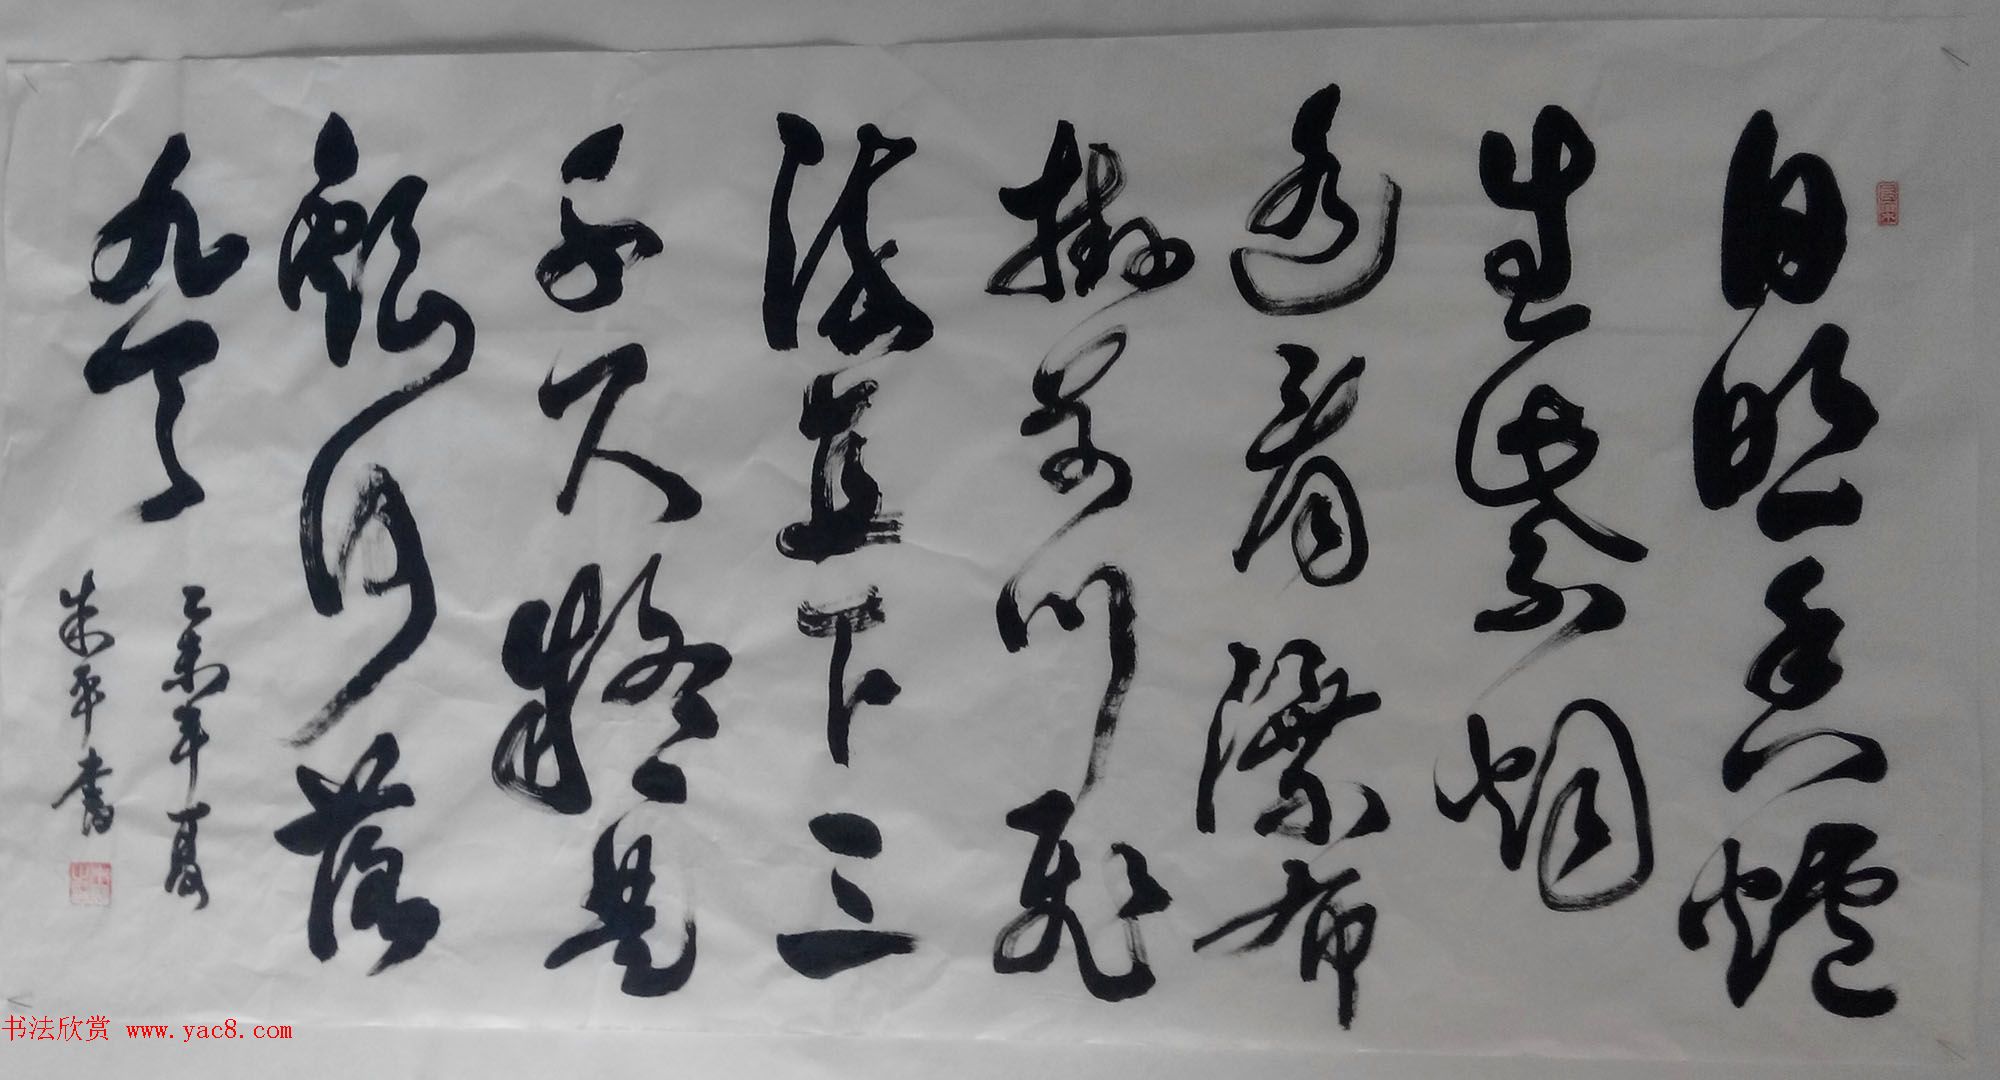 日照香爐
生紫烟
遥看瀑布
挂前川飛
流直下三
千尺疑是
銀河落
九天
乙未年夏
朱平書
书法欣赏 www.yac8.com